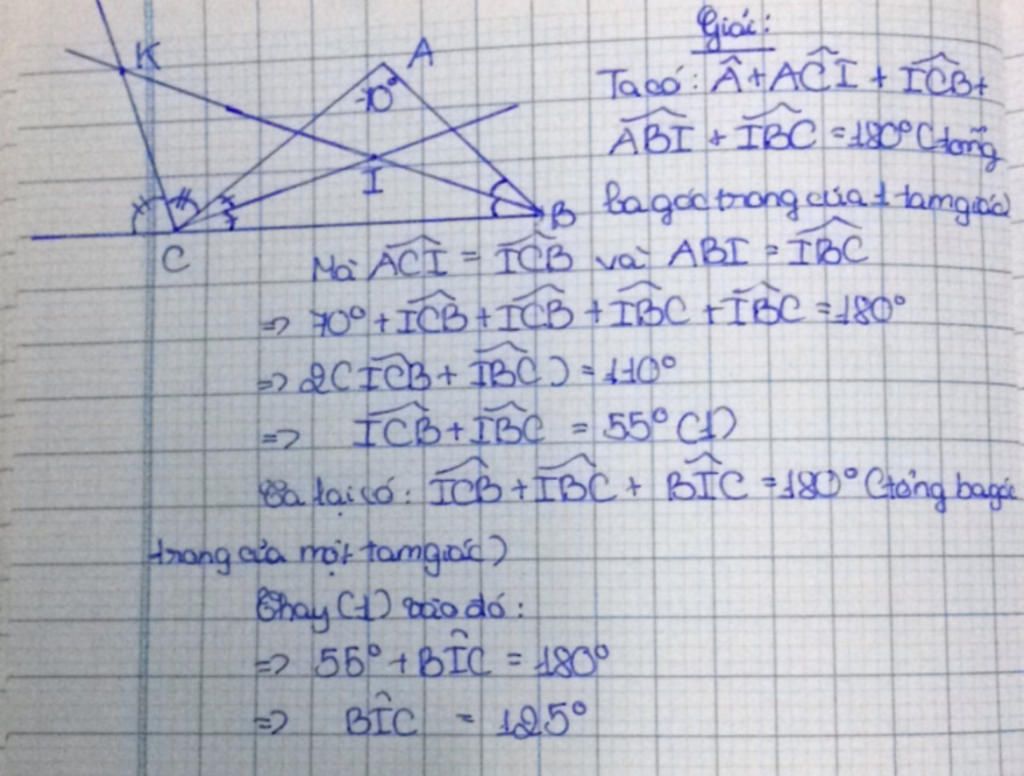 K
A
70°
I
B
C
Giải:
Ta có: Â + AĈI + IĈB +
ABI + IBC = 180° (tổng
ba góc trong của 1 tam giác)
Mà ACI = ICB và ABI = IBC
=> 70° + ICB + ICB + IBC + IBC = 180°
=> 2(ICB + IBC) = 110°
=> ICB + IBC = 55° (1)
Ta lại có: ICB + IBC + BIC = 180° (tổng ba góc
trong của một tam giác)
Thay (1) vào đó:
=> 55° + BÎC = 180°
=> BÎC = 125°